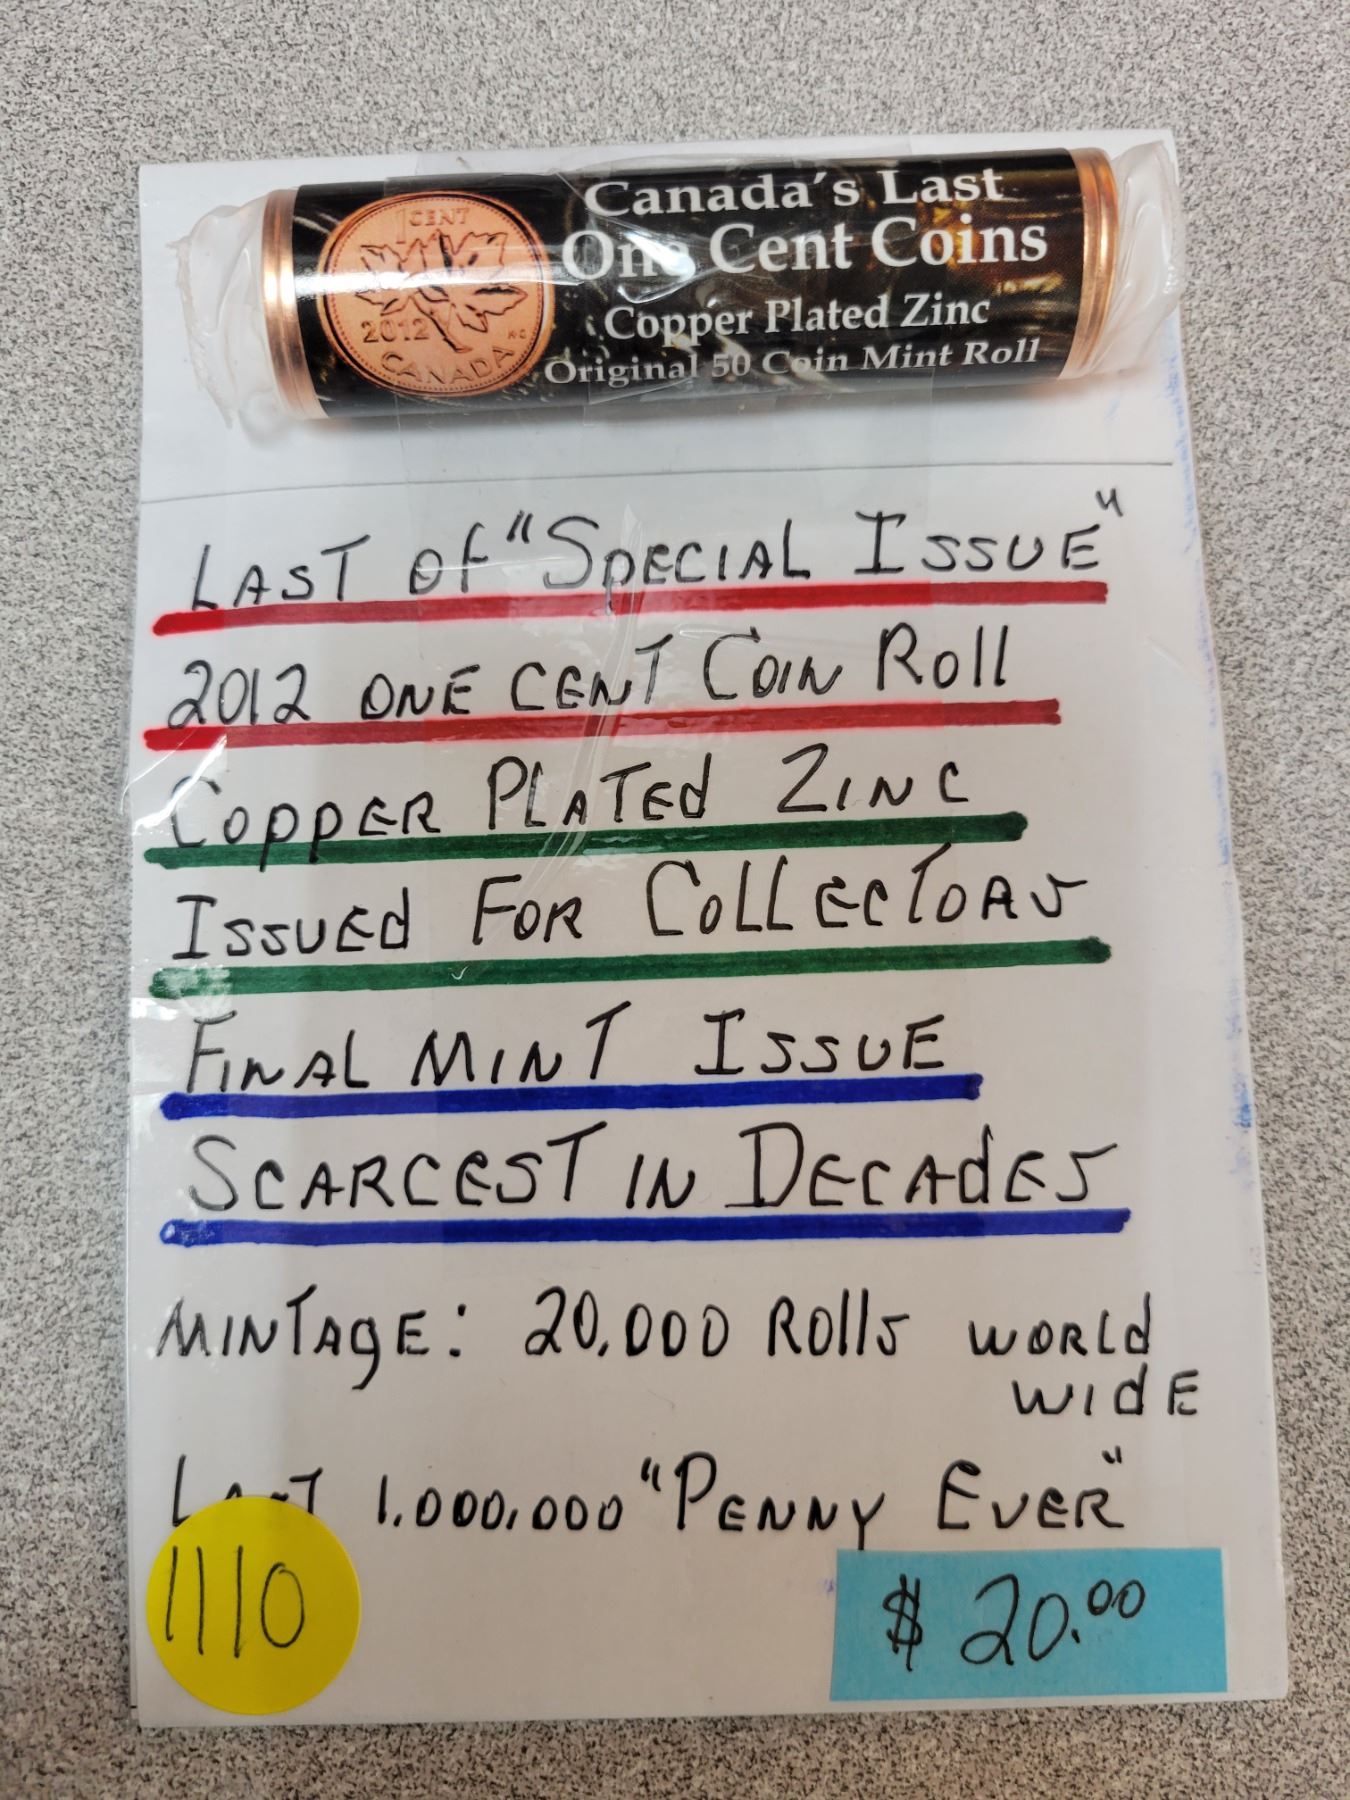 Canada's Last
One Cent Coins
Copper Plated Zinc
Original 50 Coin Mint Roll
1 CENT
2012
CANADA
LAST OF "SPECIAL ISSUE"
2012 ONE CENT COIN ROLL
COPPER PLATED ZINC
ISSUED FOR COLLECTORS
FINAL MINT ISSUE
SCARCEST IN DECADES
MINTAGE: 20,000 ROLLS WORLD
WIDE
LAST 1,000,000 "PENNY EVER"
1110
$ 20.00